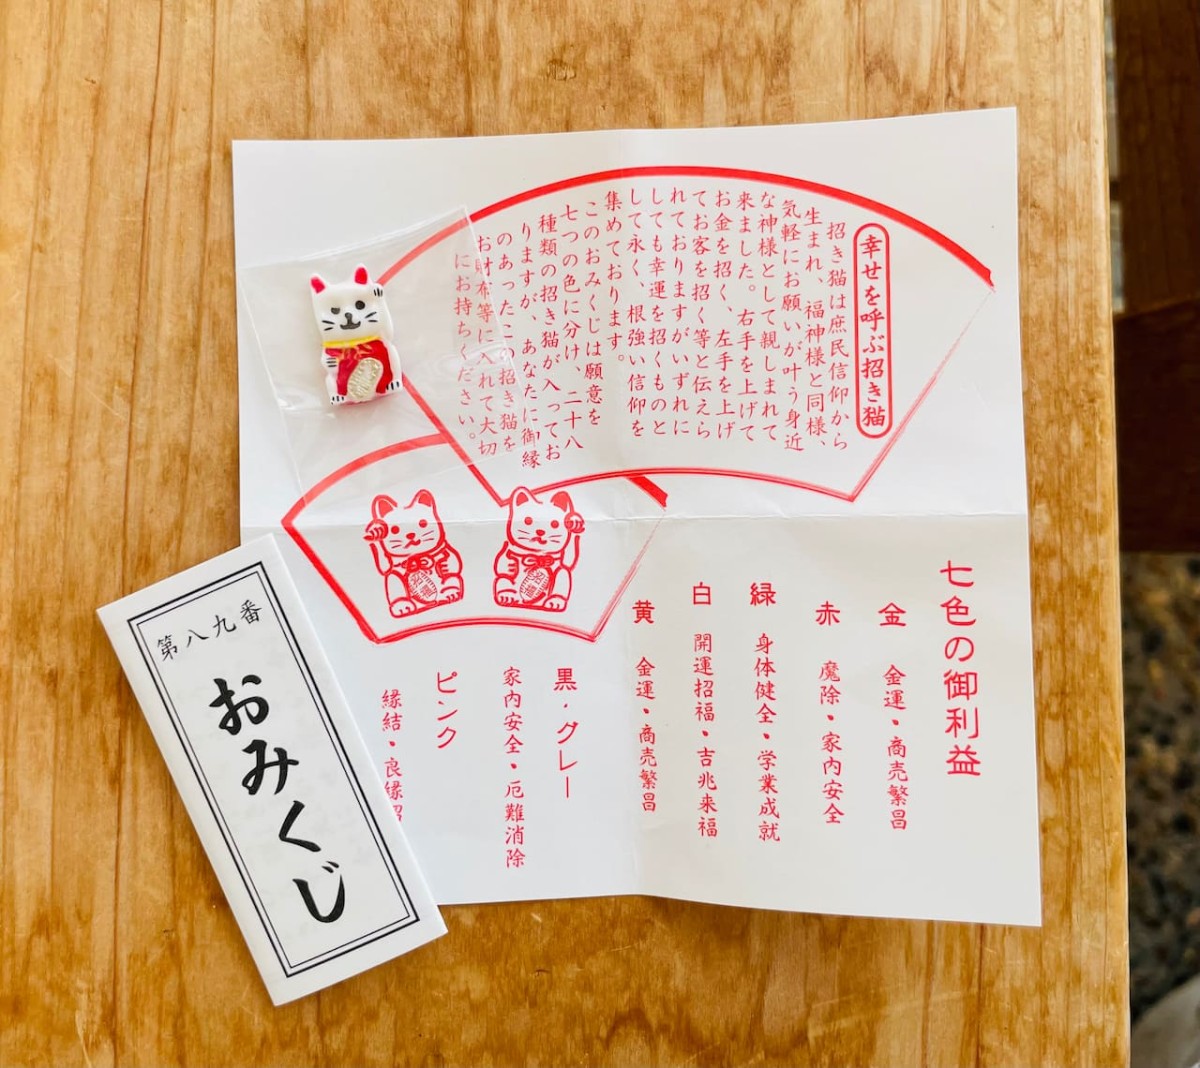 幸せを呼ぶ招き猫
招き猫は庶民信仰から
生まれ、福神様と同様、
気軽にお願いが叶う身近
な神様として親しまれて
来ました。右手を上げて
お金を招く、左手を上げ
てお客を招く等と伝えら
れておりますがいずれに
しても幸運を招くものと
して永く、根強い信仰を
集めております。
このおみくじは願意を
七つの色に分け、二十八
種類の招き猫が入ってお
りますが、あなたに御縁
のあったこの招き猫を
お財布等に入れて大切
にお持ちください。
七色の御利益
金 金運・商売繁昌
赤 魔除・家内安全
緑 身体健全・学業成就
白 開運招福・吉兆来福
黄 金運・商売繁昌
黒・グレー
家内安全・厄難消除
ピンク
縁結・良縁
第八九番
おみくじ